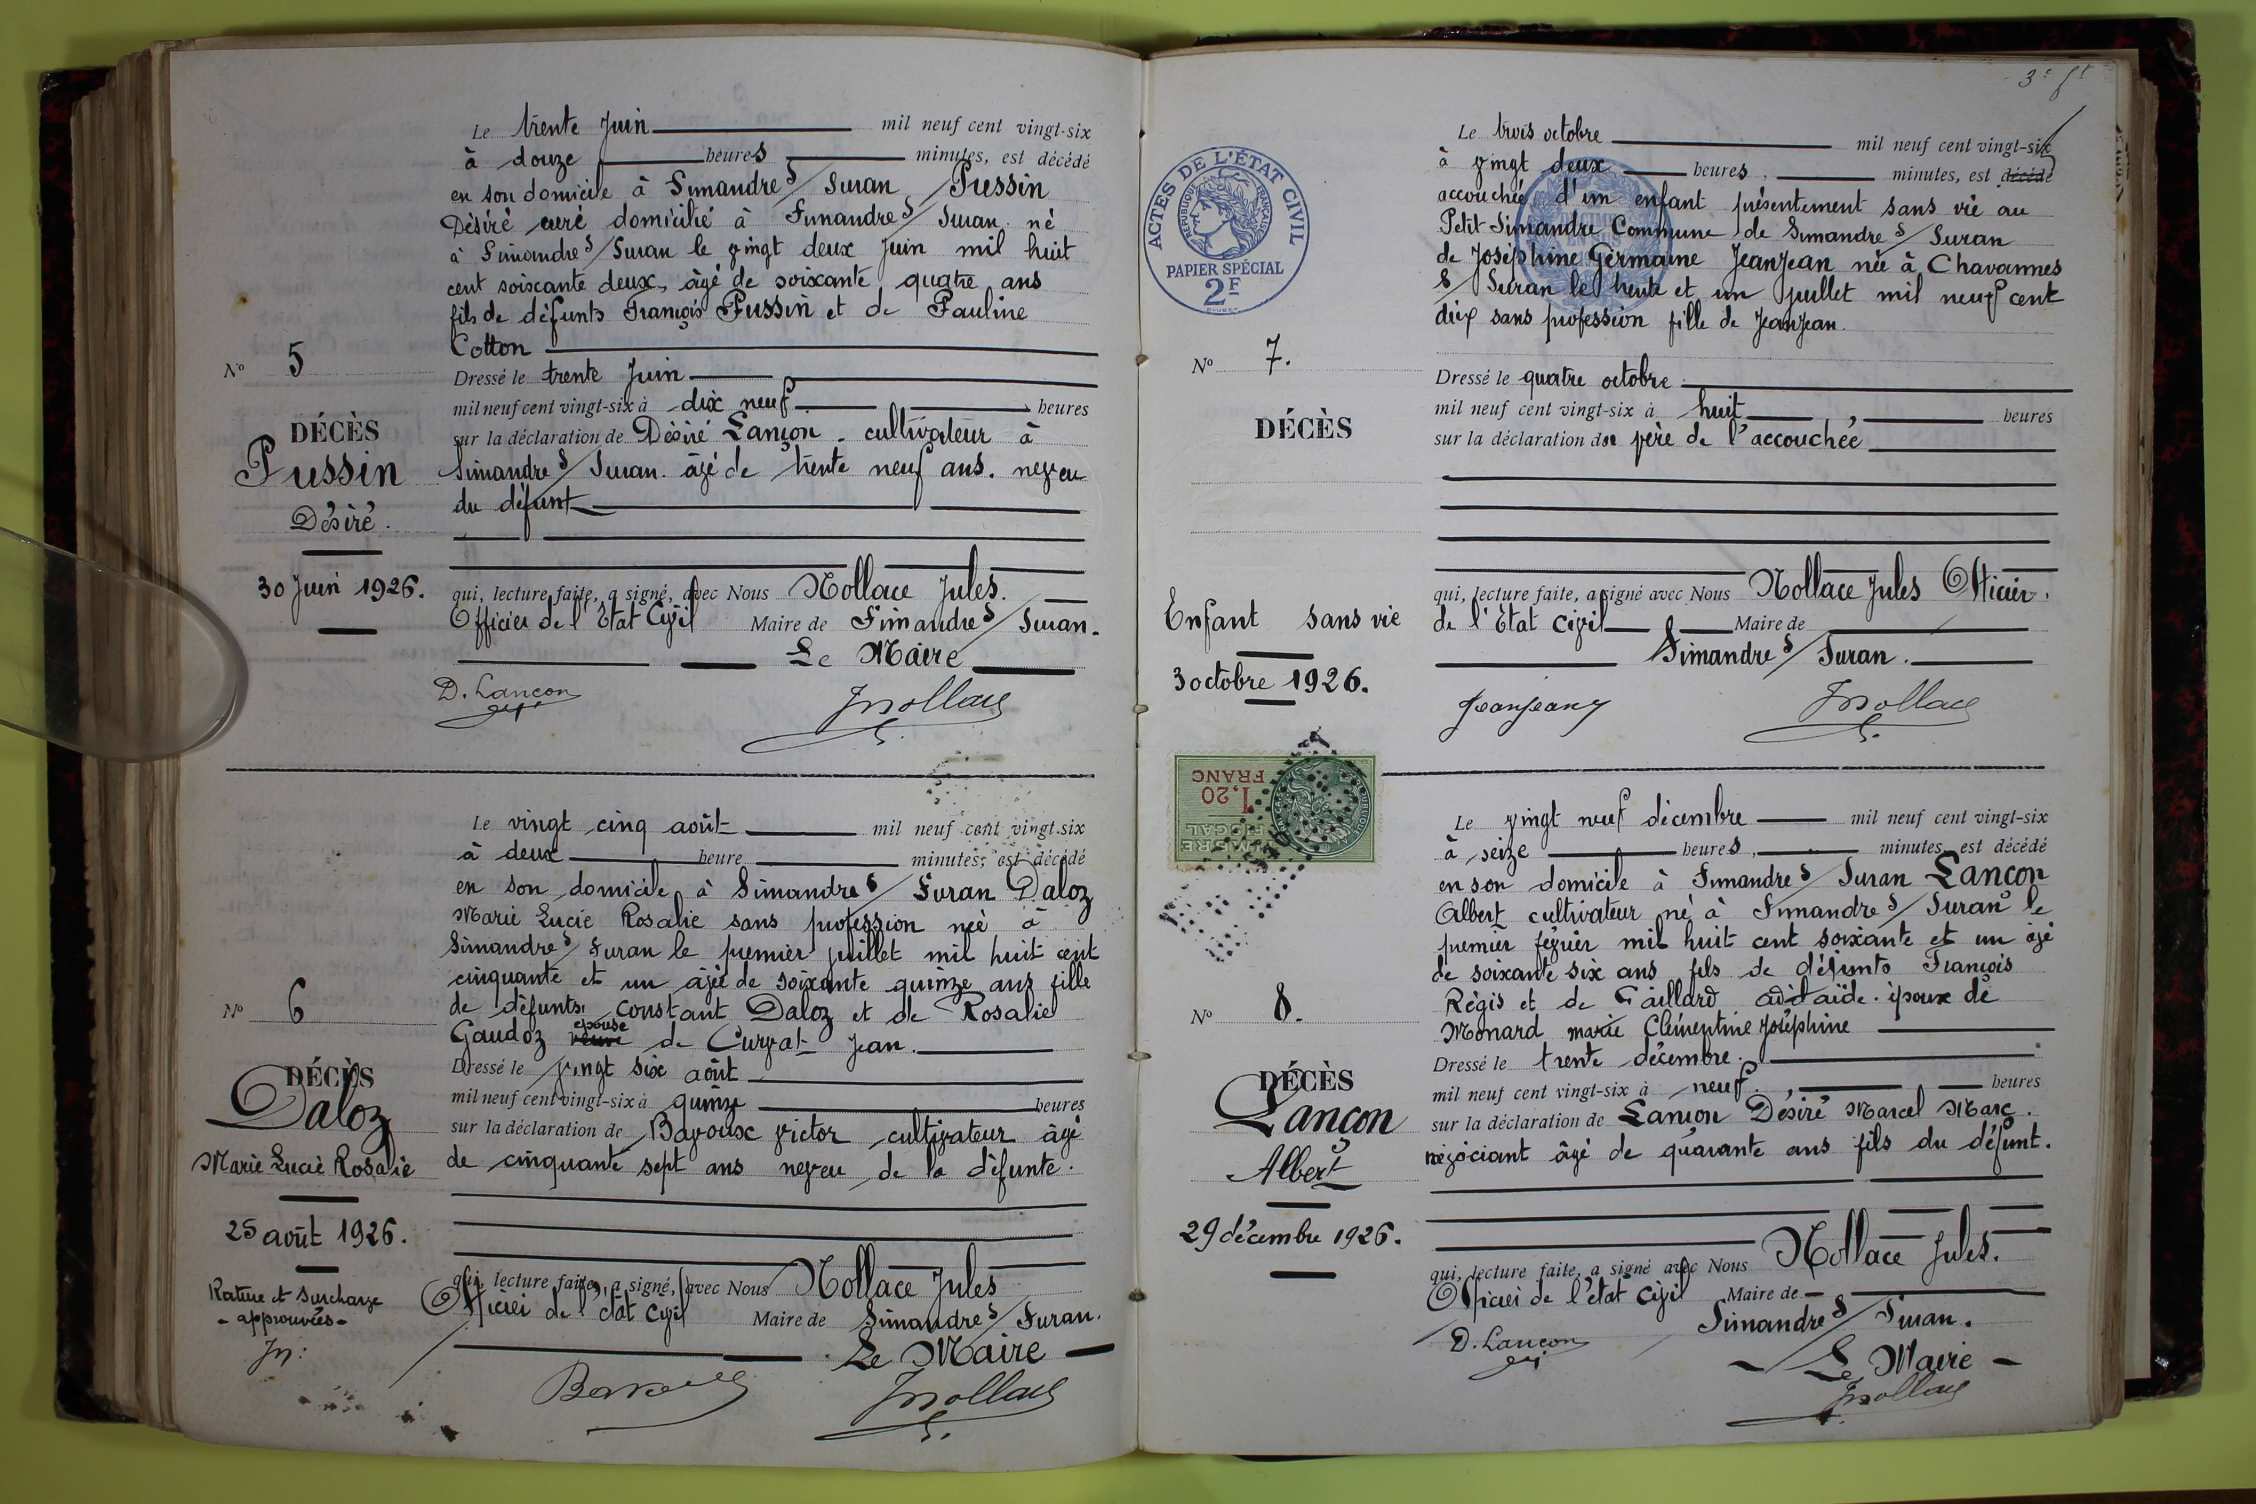 Le trente Juin mil neuf cent vingt-six
à douze heures minutes, est décédé
en son domicile à Simandre s/ Suran Pussin
Désiré curé domicilié à Simandre s/ Suran né
à Simandre s/ Suran le vingt deux Juin mil huit
cent soixante deux, âgé de soixante quatre ans
fils de défunts François Pussin et de Pauline
Cotton
No 5
Dressé le trente Juin
mil neuf cent vingt-six à dix neuf heures
sur la déclaration de Désiré Lançon. cultivateur à
Simandre s/ Suran. âgé de trente neuf ans. neveu
du défunt
DÉCÈS
Pussin
Désiré.
30 Juin 1926.
qui, lecture faite, a signé, avec Nous Nollace Jules.
Officier de l'Etat Civil Maire de Simandre s/ Suran.
Le Maire
D. Lançon
JNollace
Le vingt cinq août mil neuf cent vingt-six
à deux heure minutes, est décédé
en son domicile à Simandre s/ Suran Daloz
Marie Lucie Rosalie sans profession née à
Simandre s/ Suran le premier juillet mil huit cent
cinquante et un âgée de soixante quinze ans fille
de défunts constant Daloz et de Rosalie
épouse
Gaudoz veuve de Curvat Jean.
No 6
Dressé le vingt six août
mil neuf cent vingt-six à quinze heures
sur la déclaration de Bavoux victor cultivateur âgé
de cinquante sept ans neveu de la défunte.
DÉCÈS
Daloz
Marie Lucie Rosalie
25 août 1926.
Rature et surcharge
- approuvées -
JN:
qui, lecture faite, a signé, avec Nous Nollace Jules
Officier de l'état civil Maire de Simandre s/ Suran.
Le Maire
Bavoux
JNollace
3e ft
ACTES DE L'ÉTAT CIVIL
RÉPUBLIQUE FRANÇAISE
PAPIER SPÉCIAL
2F
Le trois octobre mil neuf cent vingt-six
à vingt deux heures, minutes, est décédé
accouchée d'un enfant présentement sans vie au
Petit Simandre Commune de Simandre s/ Suran
de Joséphine Germaine JeanJean née à Chavannes
s/ Suran le trente et un juillet mil neuf cent
dix sans profession fille de JeanJean.
No 7.
Dressé le quatre octobre
mil neuf cent vingt-six à huit heures
sur la déclaration du père de l'accouchée
DÉCÈS
Enfant sans vie
3 octobre 1926.
qui, lecture faite, a signé avec Nous Nollace Jules Officier
de l'Etat civil Maire de
Simandre s/ Suran.
Jeanjean
JNollace
1,20
FRANC
TIMBRE
FISCAL
Le vingt neuf décembre mil neuf cent vingt-six
à seize heures, minutes est décédé
en son domicile à Simandre s/ Suran Lançon
Albert cultivateur né à Simandre s/ Suran le
premier février mil huit cent soixante et un âgé
de soixante six ans fils de défunts François
Régis et de Gaillard adélaïde. époux de
Monard marie Clémentine Joséphine
No 8.
Dressé le trente décembre.
mil neuf cent vingt-six à neuf. heures
sur la déclaration de Lançon Désiré Marcel Marc.
négociant âgé de quarante ans fils du défunt.
DÉCÈS
Lançon
Albert
29 décembre 1926.
qui, lecture faite, a signé avec Nous Nollace Jules.
Officier de l'état civil Maire de
Simandre s/ Suran.
D. Lançon
Le Maire
JNollace